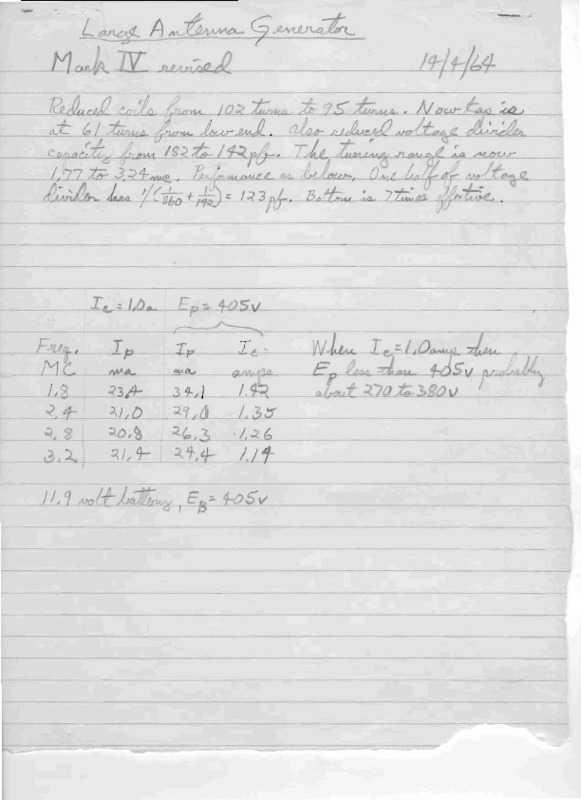 Large Antenna Generator
Mark IV revised 14/4/64
Reduced coils from 102 turns to 95 turns. Now tap is
at 61 turns from low end. Also reduced voltage divider
capacity from 182 to 142 pf. The tuning range is now
1.77 to 3.24 mc. Performance as below. One half of voltage
divider has 1/(1/360 + 1/192) = 123 pf. Bottom is 7 times effective.
Ic = 1.0a Ep = 405v
Freq. Ip Ip Ic
MC ma ma amps
1.8 23.4 34.1 1.42
2.4 21.0 29.0 1.35
2.8 20.8 26.3 1.26
3.2 21.4 24.4 1.14
When Ic = 1.0 amps then
Ep less than 405v probably
about 270 to 380v
11.9 volt battery, EB = 405v